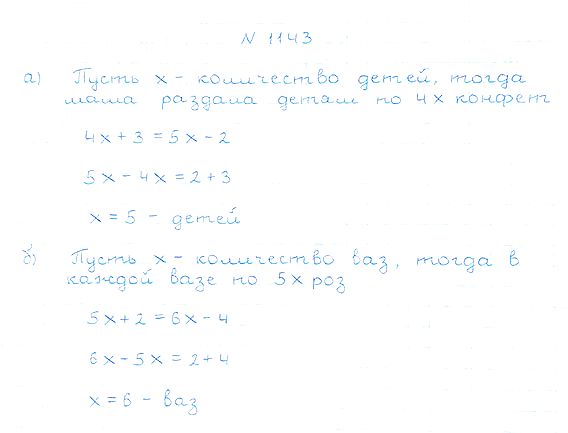 N 1143
а) Пусть x - количество детей, тогда
мама раздала детям по 4x конфет
4x + 3 = 5x - 2
5x - 4x = 2 + 3
x = 5 - детей
б) Пусть x - количество ваз, тогда в
каждой вазе по 5x роз
5x + 2 = 6x - 4
6x - 5x = 2 + 4
x = 6 - ваз